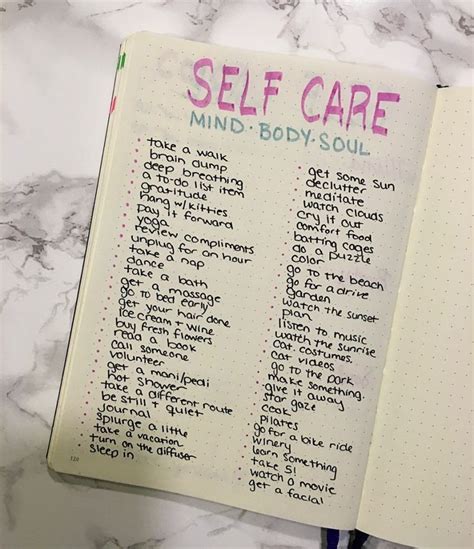 SELF CARE
MIND · BODY · SOUL
take a walk
brain dump
deep breathing
a to-do list item
gratitude
hang w/kitties
pay it forward
yoga
review compliments
unplug for an hour
take a nap
dance
take a bath
get a massage
go to bed early
get your hair done
ice cream + wine
buy fresh flowers
read a book
call someone
volunteer
get a mani/pedi
hot shower
take a different route
be still + quiet
journal
splurge a little
take a vacation
turn on the diffuser
sleep in
get some sun
declutter
meditate
watch clouds
cry it out
comfort food
batting cages
do a puzzle
color
go to the beach
go for a drive
garden
watch the sunset
plan
listen to music
watch the sunrise
cat costumes.
cat videos
go to the park
make something.
give it away
star gaze
cook
pilates
go for a bike ride
winery
learn something
take 5!
watch a movie
get a facial